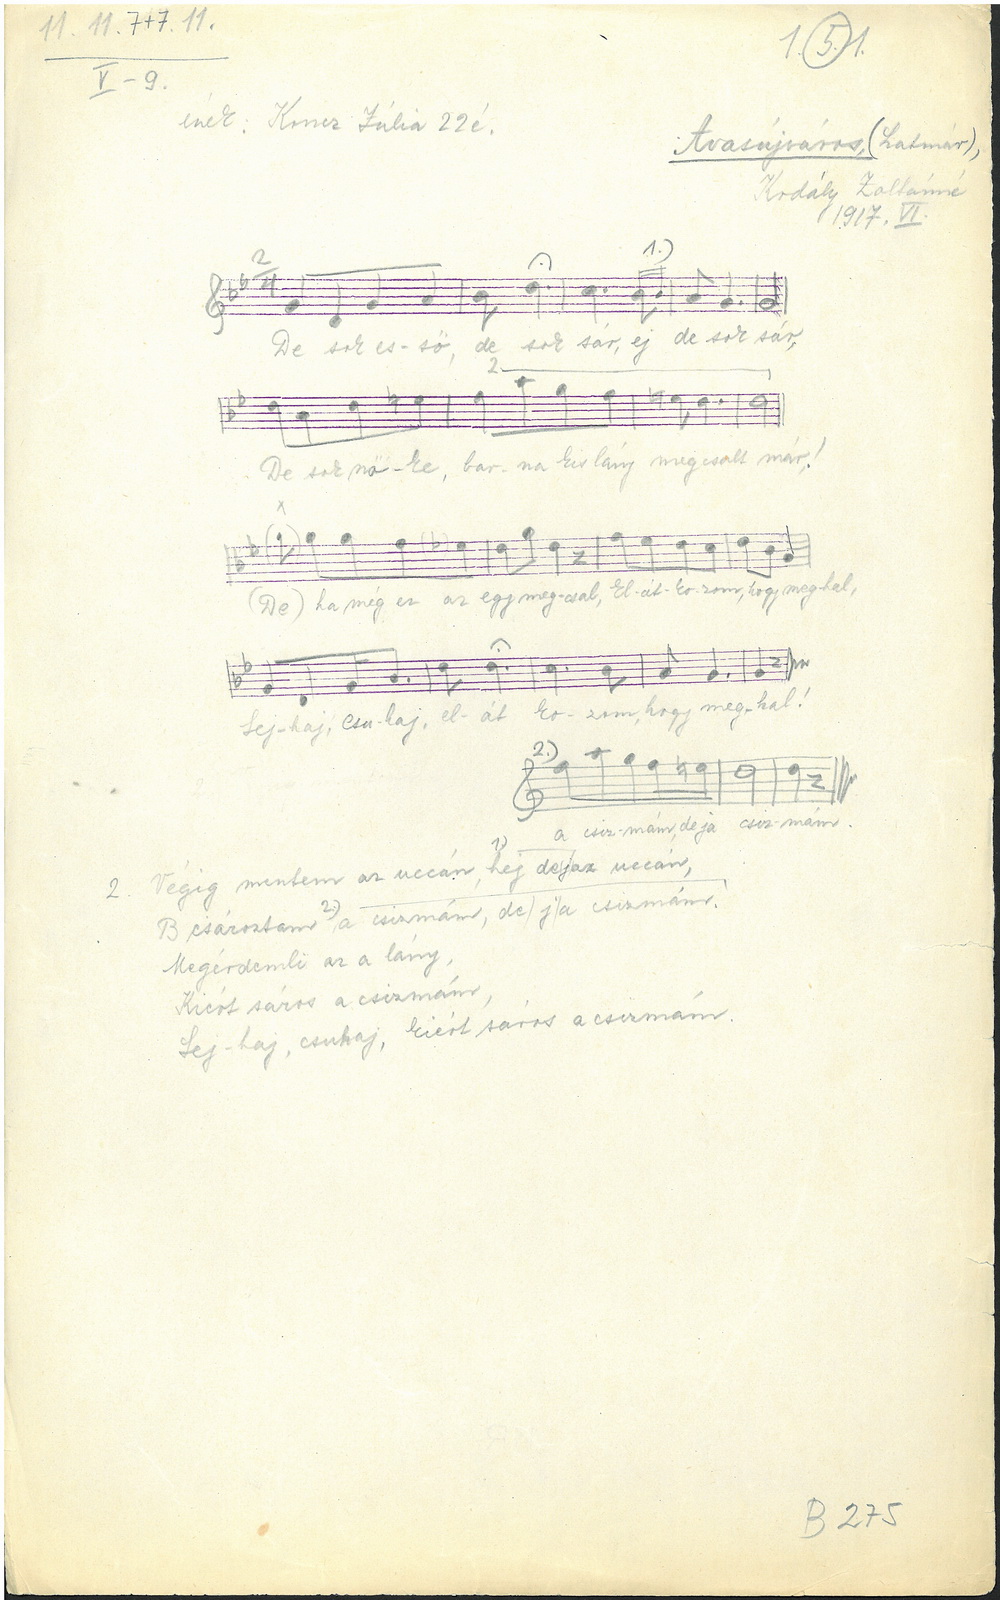 11. 11. 7+7. 11.
V - 9.
1. 5. 1.
ének: Koncz Júlia 22 é.
Avasújváros, (Szatmár),
Kodály Zoltánné
1917. VI.
2/4
1.)
De sok es-ső, de sok sár, ej de sok sár,
2
De sok nő-ke, bar-na kislány megcsalt már!
x
(De) ha még ez az egy meg-csal, El-át-ko-zom, hogy meg-hal,
Sej-haj, csu-haj, el-át ko-zom, hogy meg-hal!
2.)
a csiz-mám, de ja csiz-mám.
1)
2. Végig mentem az uccán, hej de jaz uccán,
B csároztam 2.) a csizmám, de j a csizmám!
Megérdemli az a lány,
Kiért sáros a csizmám,
Sej-haj, csuhaj, kiért sáros a csizmám.
B 275